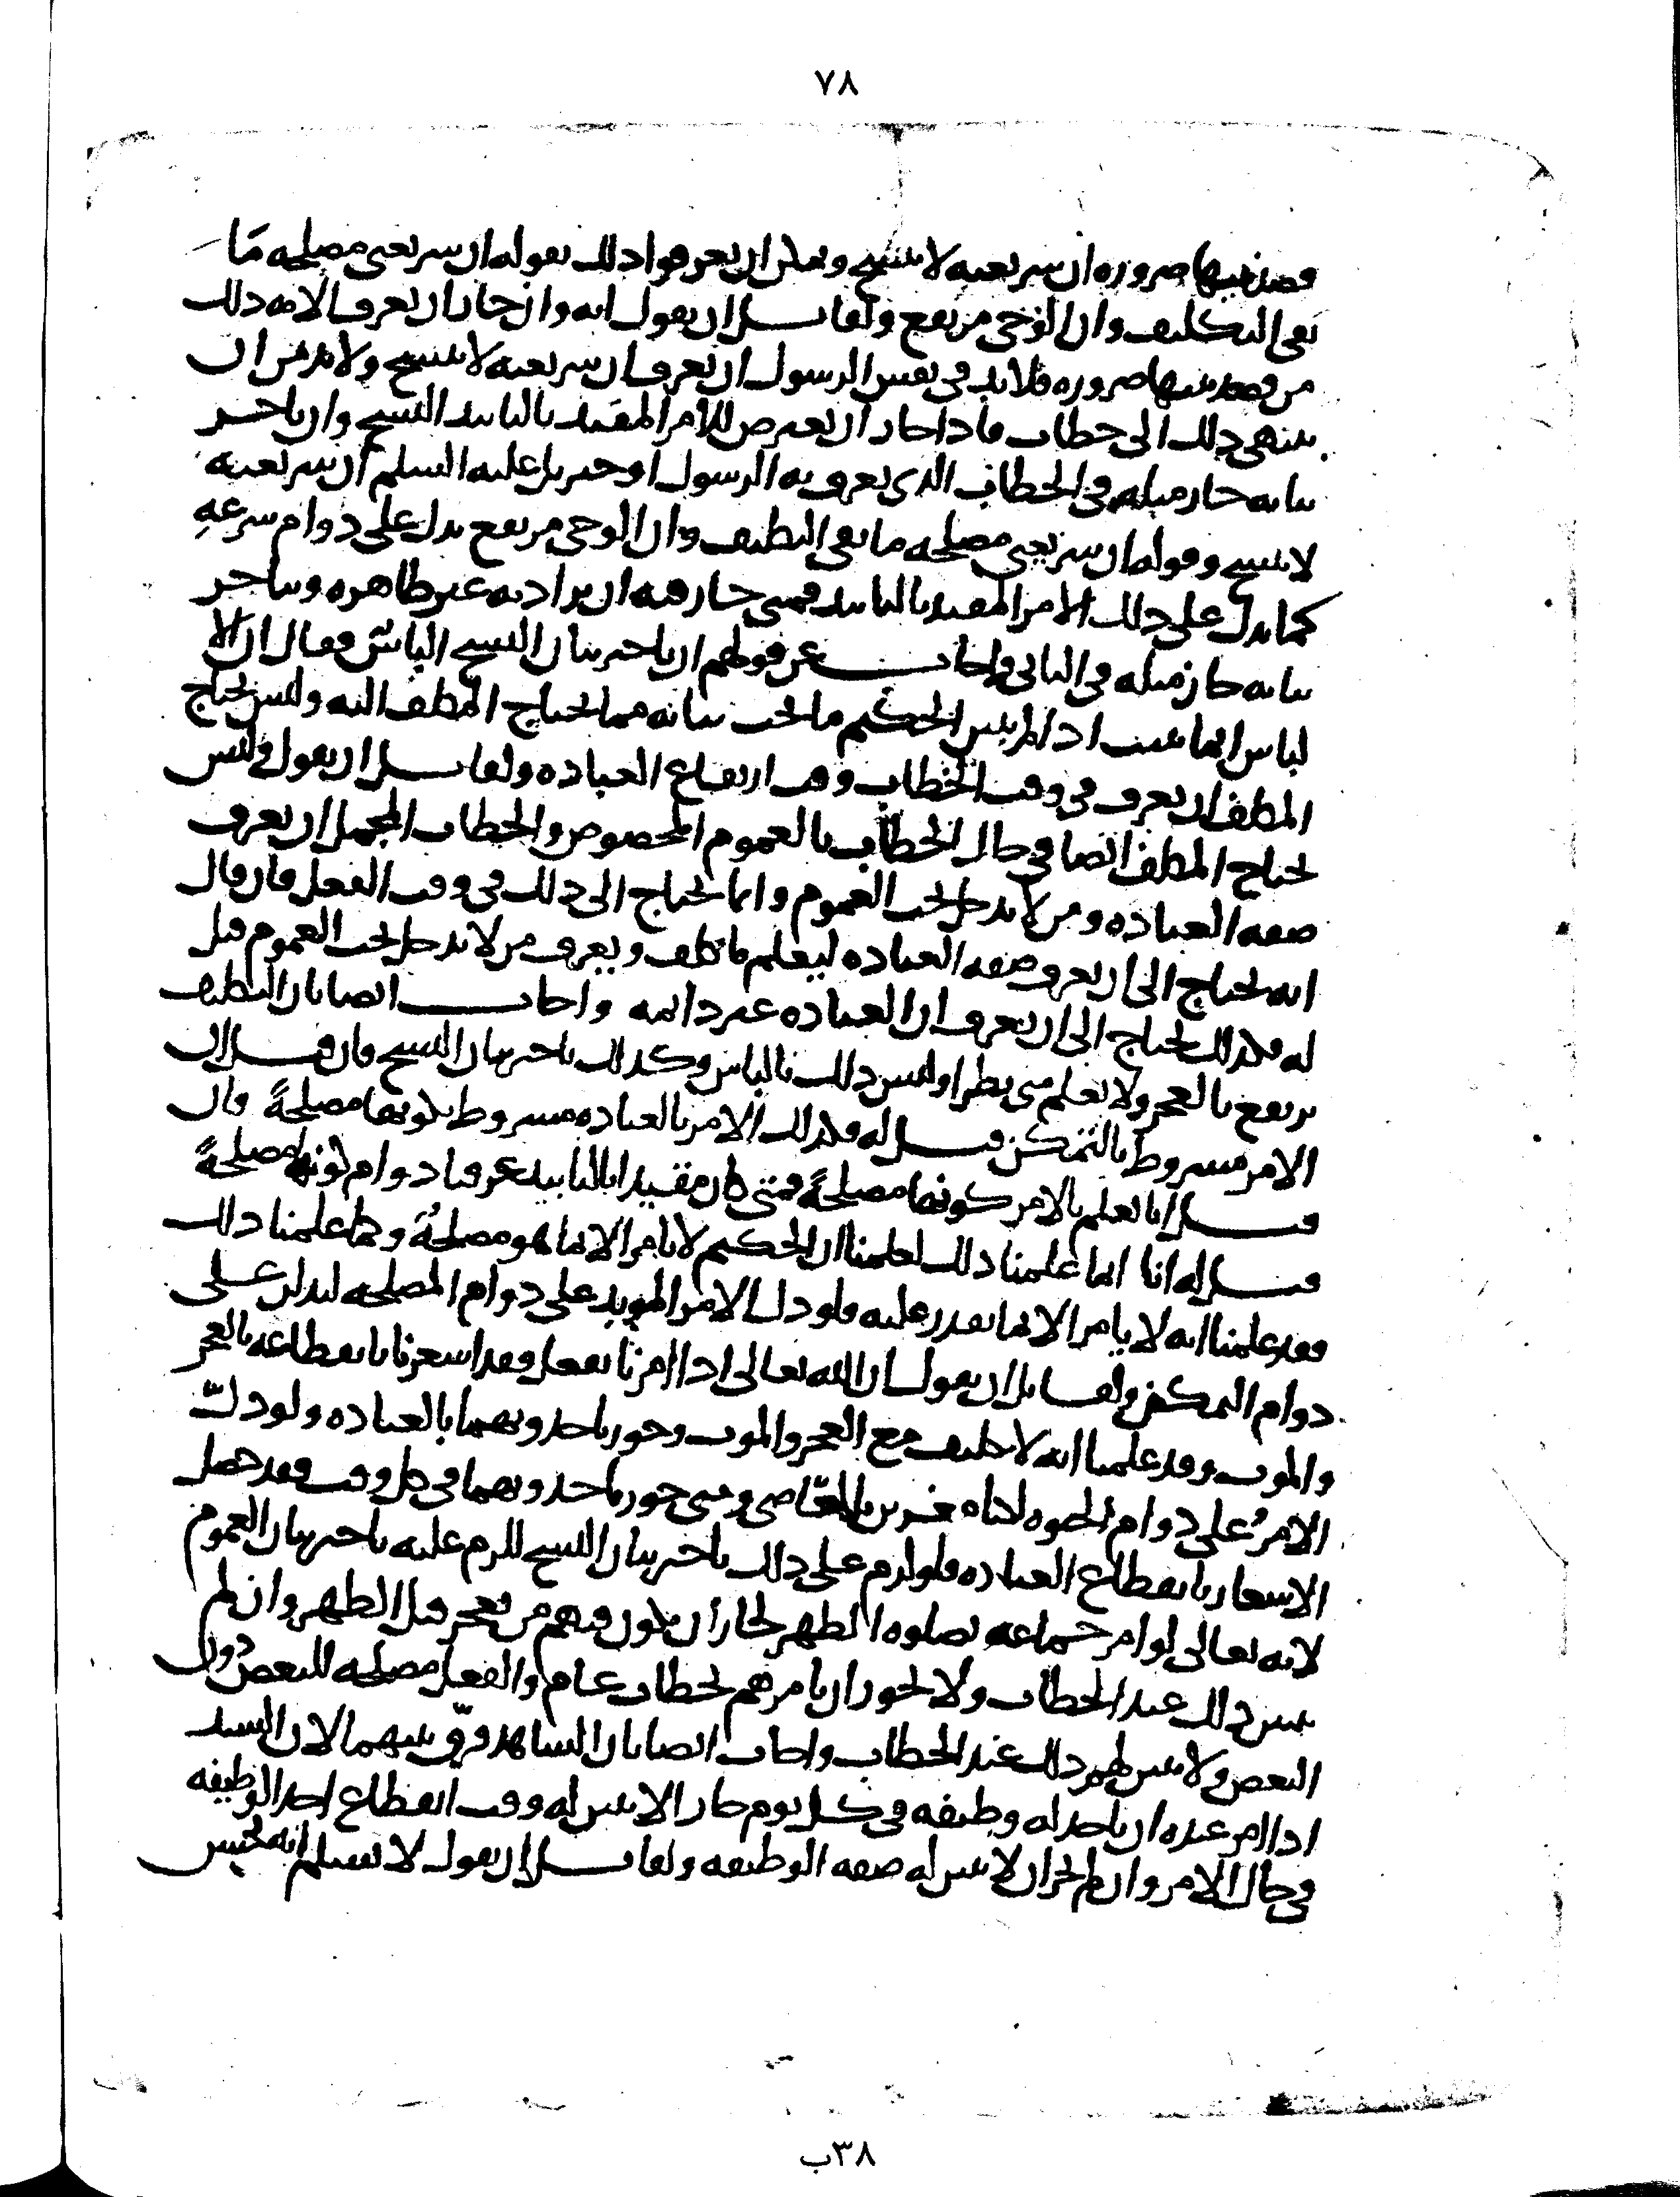 ٧٨
قصد نبيها ضروره ان شريعته لا تنسخ ويمكن ان يعرفوا ذلك بقوله ان شريعتي مصلحه مَا
بقي التكليف وان الوَحي مرتفع ولقايل ان يقول انه وان جاز ان تعرف الامه ذلك
من قصد نبيها ضروره فلا بد في نفس الرسول ان يعرف ان شريعته لا تنسخ ولا بد من ان
ينتهي ذلك الى خطاب فاذا جاز ان يعترض للامر المقيد بالتابيد النسخ وان تاخر
بيانه جاز مثله في الخطاب الذي يعرف به الرسول او جبريل عليه السلم ان شريعته
لا تنسخ وقوله ان شريعتي مصلحه ما بقي التكليف وان الوحي مرتفع يدل على دوام شرعهِ
كما يدل على ذلك الامر المقيد بالتابيد فمتى جاز فيه ان يراد به غير ظاهره ويتاخر
بيانه جاز مثله في الثاني واجاب عن قولهم ان تاخير بيان النسخ الباس فقال ان الا
لباس انما يثبت اذا لم يبين الحكيم ما يجب بيانه مما يحتاج المكلف اليه وليس يحتاج
المكلف ان يعرف في وقت الخطاب وقت ارتفاع العباده ولقايل ان يقول وليس
يحتاج المكلف ايضا في حال الخطاب بالعموم المخصوص والخطاب المجمل ان يعرف
صفه العباده ومن لا يدخل تحت العموم وانما يحتاج الى ذلك في وقت الفعل فان قال
انه يحتاج الى ان يعرف صفه العباده ليعلم ما كلف ويعرف من لا يدخل تحت العموم قيل
له فكذلك يحتاج الى ان يعرف ان العباده غير دائمه واجاب ايضا بان التكليف
يرتفع بالعجز ولا نعلم متى يطرا وليس ذلك بالباس وكذلك تاخير بيان النسخ فان قيل ان
الامر مشروط بالتمكن قيل له فكذلك الامر بالعباده مشروط بكونها مصلحةً قال
قيل انا نعلم بالامر كونها مصلحةً فمتى كان مقيدا بالتابيد عرفنا دوام كونها مصلحةً
قيل له انا انما علمنا ذلك لعلمنا ان الحكيم لا يامر الا بما هو مصلحةٌ وكما علمنا ذلك
فقد علمنا انه لا يامر الا بما نقدر عليه فلو دل الامر المؤبد على دوام المصلحه ليدلن على
دوام التمكن ولقايل ان يقول ان الله تعالى اذا امرنا بفعل فقد اشعرنا بانقطاعه بالعجز
والموت وقد علمنا انه لا تكليف مع العجز والموت وجوزنا حدوثهما بالعباده ولو دلّ
الامرُ على دوام الحيوه لكان مغرين بالمعَاصي ومتى جوزنا حدوثهما في كل وقت فقد حصل
الاشعار بانقطاع العباده فلو لزم على ذلك تاخير بيان النسخ للزم عليه تاخير بيان العموم
لانه تعالى لو امر جماعه بصلوه الظهر لجاز ان يكون فيهم من يعجز قبل الظهر وان لم
يبين ذلك عند الخطاب ولا يجوز ان يامرهم بخطاب عام والفعل مصلحه للبعض دون
البعض ولا يبين لهم ذلك عند الخطاب واجاب ايضا بان الشاهد فرّق بينهما لان السيد
اذا امر عبده ان ياخذ له وظيفه في كل يوم جاز الا يبين له وقت انقطاع اخذ الوظيفه
في حال الامر وان لم يجز ان لا يبين له صفه الوظيفه ولقايل ان يقول لا نسلم انه يحسن
٣٨ب